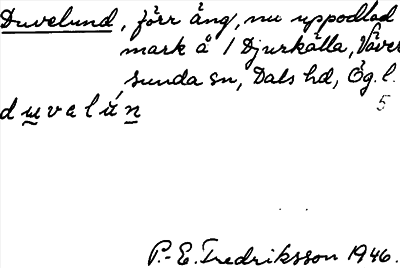 Duvelund, förr äng, nu uppodlad
mark å 1 Djurkälla, Väver
sunda sn, Dals hd, Ög. l.
duvelún
5
P.-E. Fredriksson 1946.